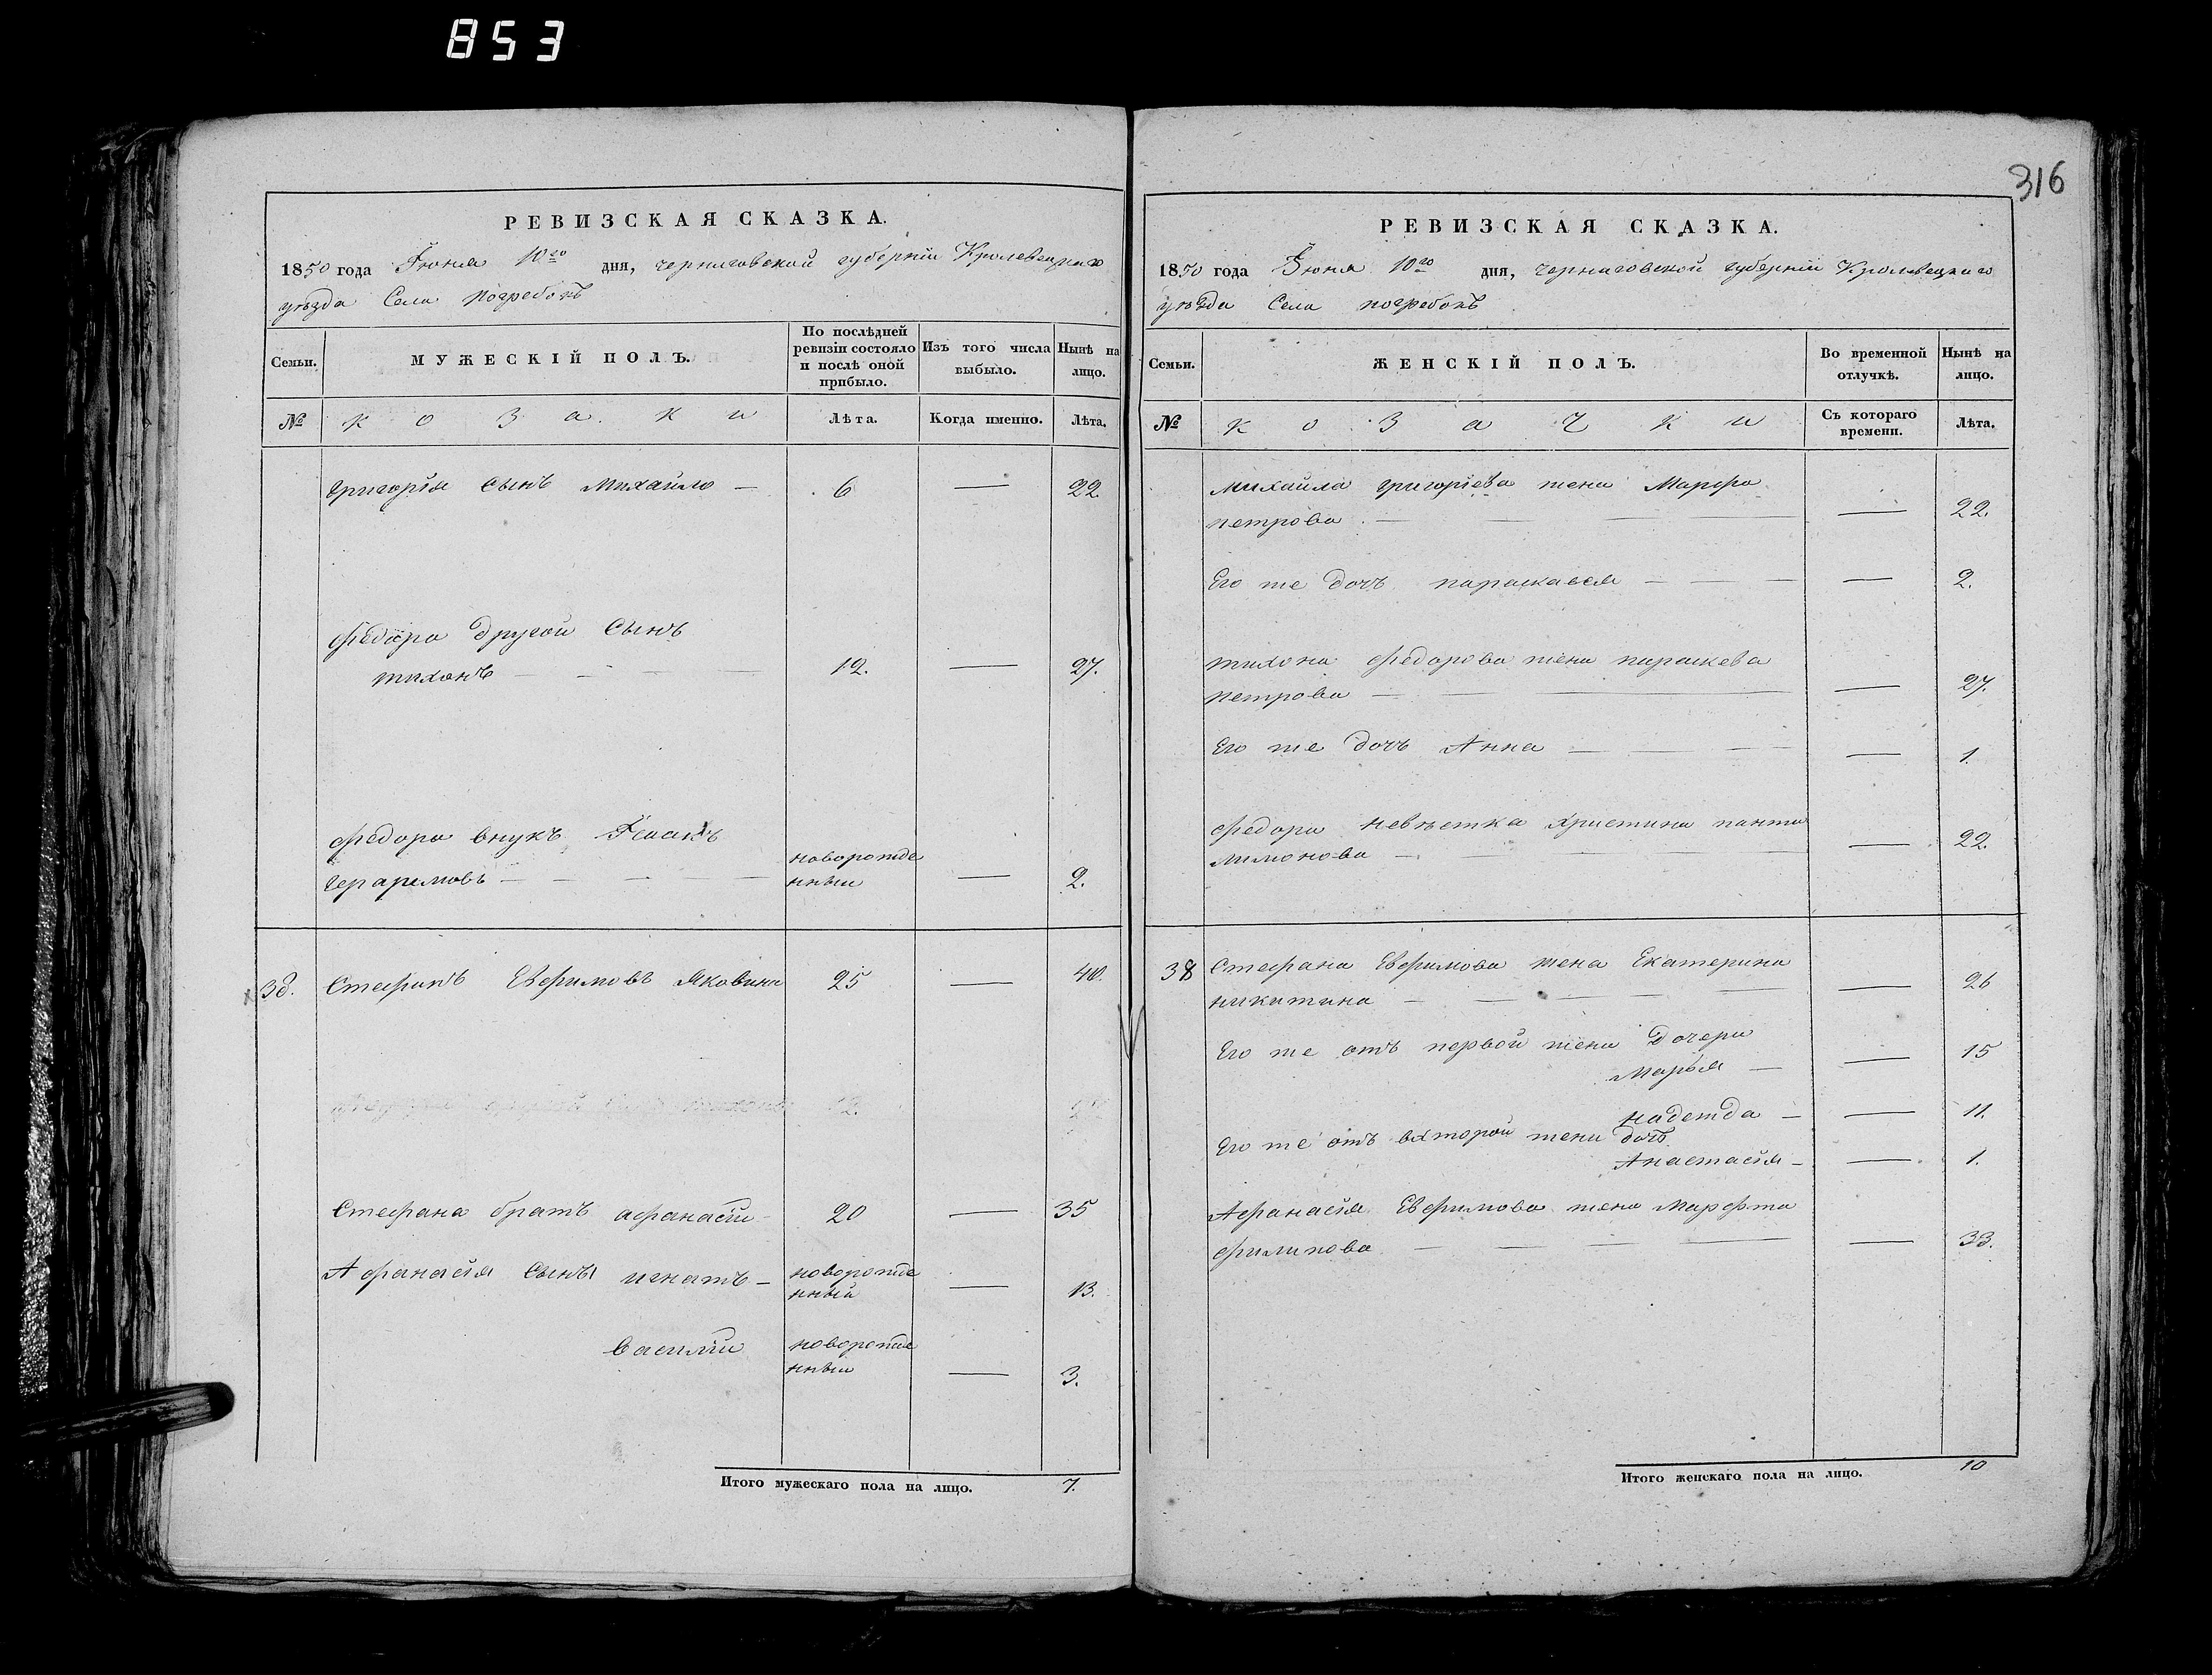 853
316
РЕВИЗСКАЯ СКАЗКА.
1850 года Іюня 10го дня, черниговской губерніи Кролевецкаго
уѣзда Села погребокъ
Семьи.
МУЖЕСКІЙ ПОЛЪ.
По послѣдней
ревизіи состояло
и послѣ оной
прибыло.
Изъ того числа
выбыло.
Нынѣ на
лицо.
№
козаки
Лѣта.
Когда именно.
Лѣта.
григорія сынъ Михайло — 6 — 22
федора другой сынъ
тихонъ — 12. — 27.
федора внукъ Ісаакъ
герасимовъ — новорожде
нный — 2.
38. Стефанъ Евфимовъ Яковина 25 — 40.
12.
Стефана братъ афанасій 20 — 35
Афанасія сыны игнатъ — новорожде
нный — 13.
василій новорожде
нный — 3.
Итого мужескаго пола на лицо. 7.
РЕВИЗСКАЯ СКАЗКА.
1850 года Іюня 10го дня, черниговской губерніи Кролевецкаго
уѣзда Села погребокъ
Семьи.
ЖЕНСКІЙ ПОЛЪ.
Во временной
отлучкѣ.
Нынѣ на
лицо.
№
козачки
Съ котораго
времени.
Лѣта.
михайла григоріева жена Марфа
петрова — 22.
Его же дочь параскавея — 2.
тихона федорова жена параскева
петрова — 27.
Его же дочь Анна — 1.
федора невѣстка христина панте
лимонова — 22.
38 Стефана Евфимова жена Екатерина
никитина — 26
Его же отъ первой жены дочери
Марья — 15
надежда — 11.
Его же отъ второй жены дочь
Анастасія — 1.
Афанасія Евфимова жена Марфта
филипова — 33.
Итого женскаго пола на лицо. 10